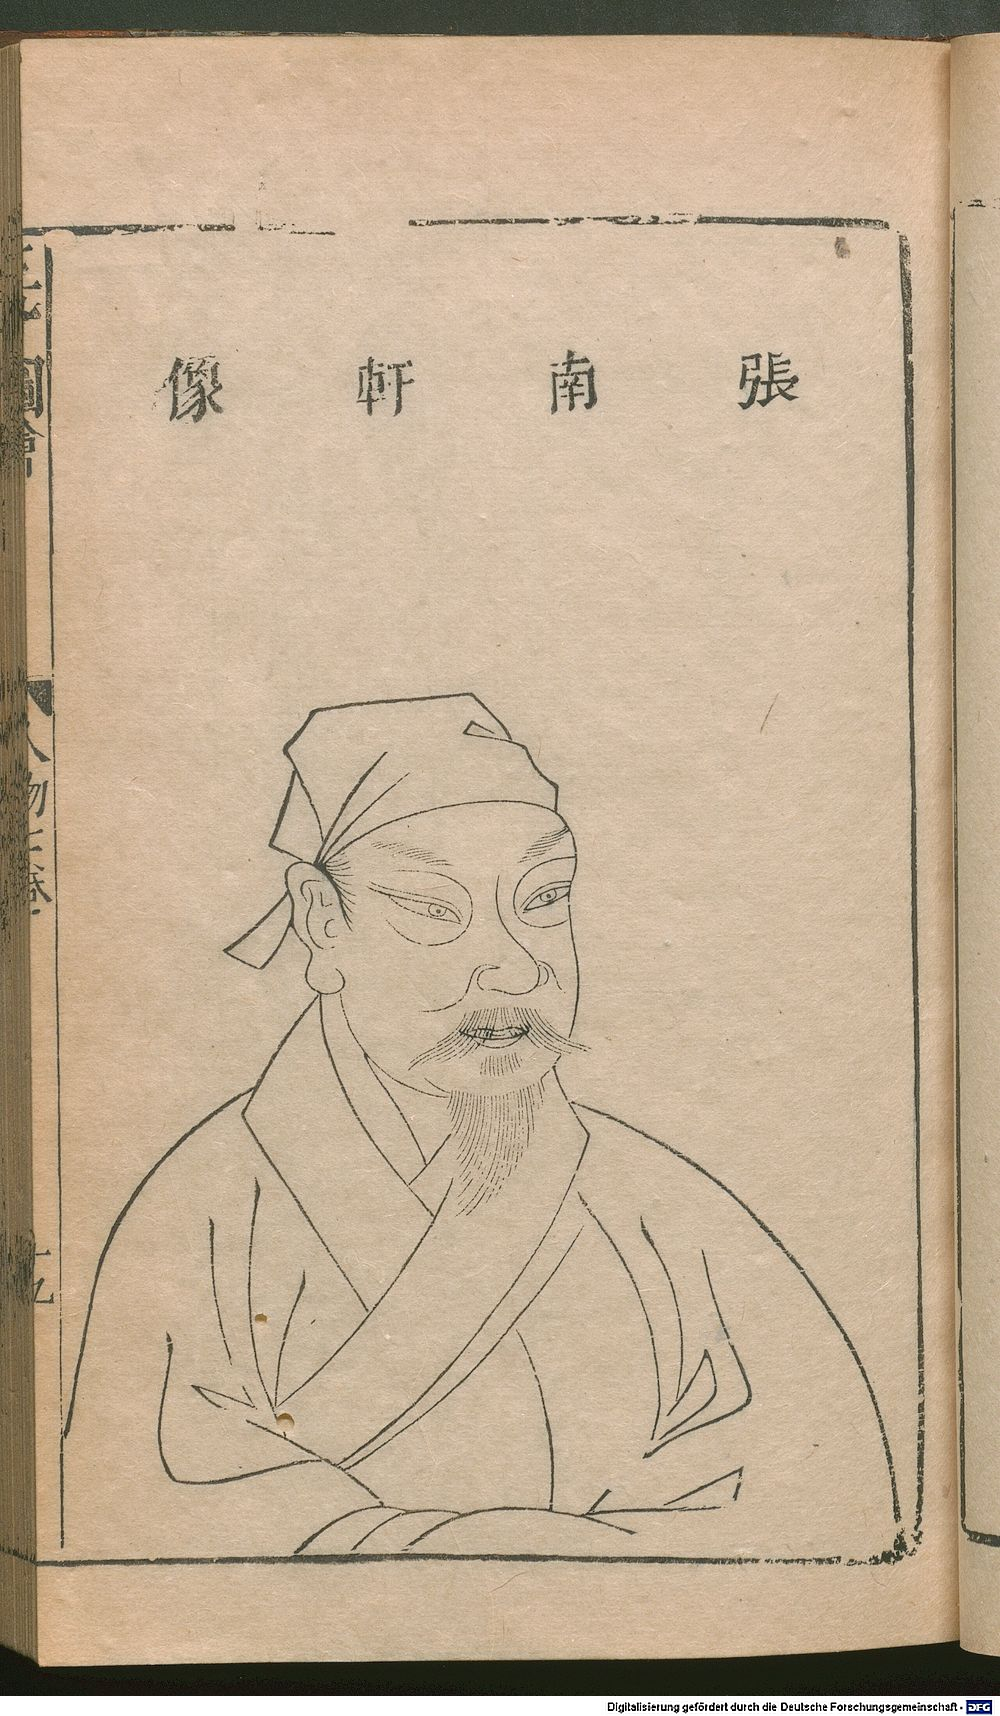 張南軒像
圖會
人物
九
Digitalisierung gefördert durch die Deutsche Forschungsgemeinschaft - DFG